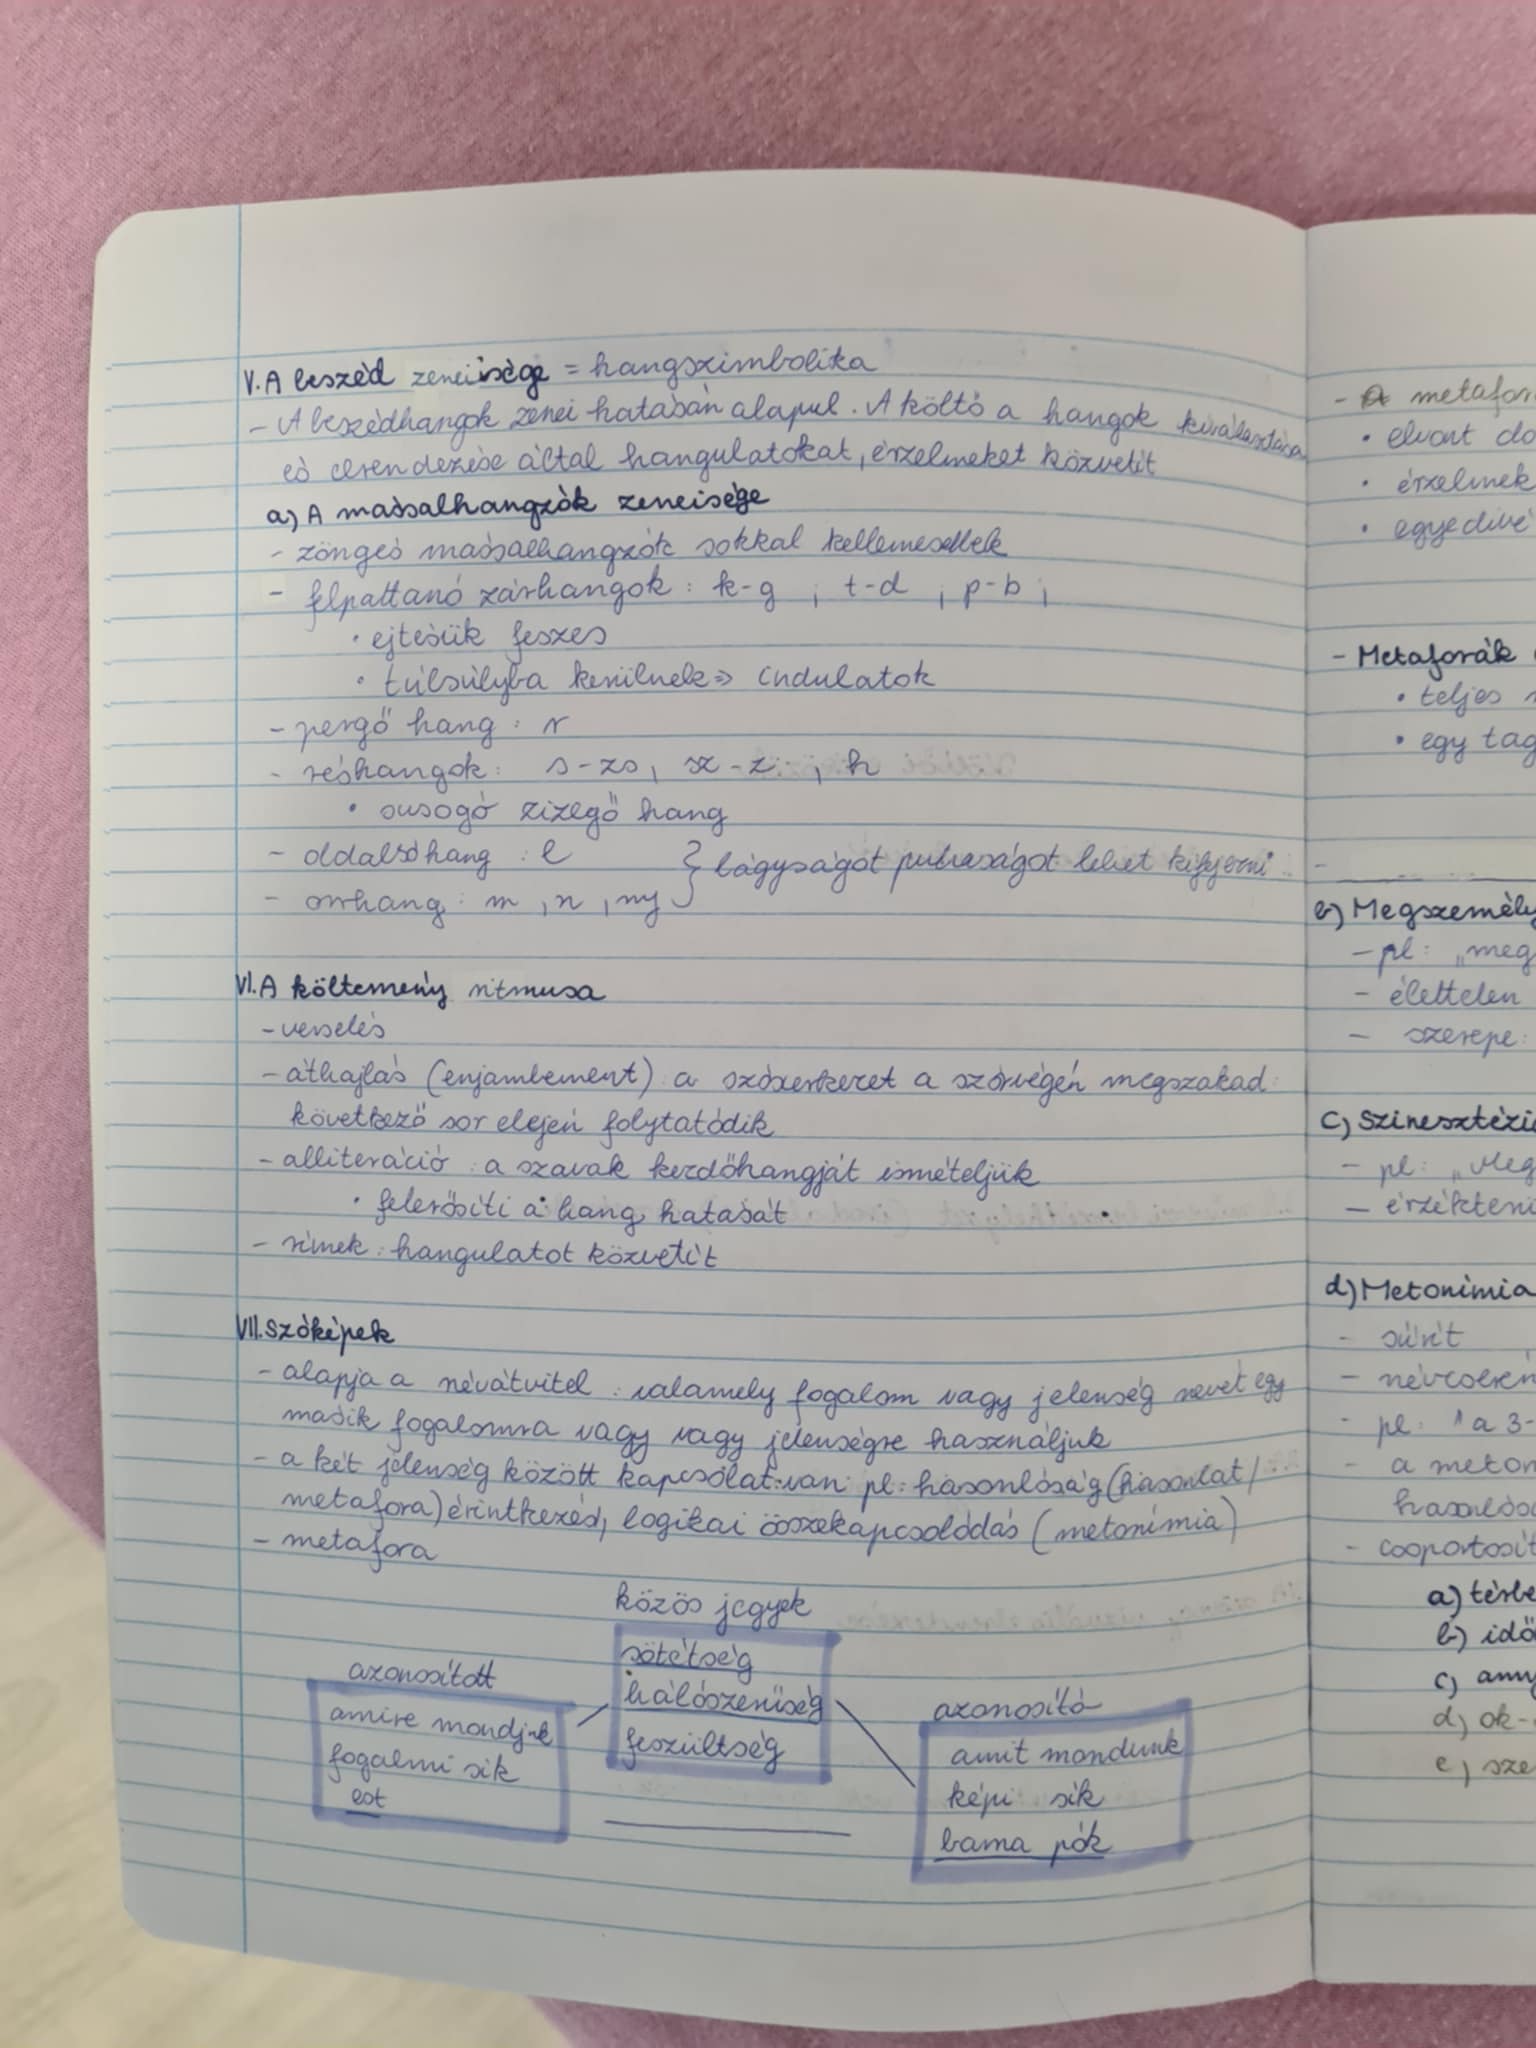 V. A beszéd zeneisége = hangszimbolika
- A beszédhangok zenei hatásán alapul. A költő a hangok kiválasztása
és elrendezése által hangulatokat, érzelmeket közvetít
a) A mássalhangzók zeneisége
- zöngés mássalhangzók sokkal kellemesebbek
- felpattanó zárhangok: k-g ; t-d ; p-b ;
• ejtésük feszes
• túlsúlyba kerülnek => indulatok
- pergő hang: r
- réshangok: s-zs, sz-z, h
• susogó zizegő hang
- oldalsóhang: l
- orrhang: m, n, ny } lágyságot puhaságot lehet kifejezni
VI. A költemény ritmusa
- verselés
- áthajlás (enjambement): a szószerkezet a sorvégén megszakad
következő sor elején folytatódik
- alliteráció: a szavak kezdőhangját ismételjük
• felerősíti a hang hatását
- rímek: hangulatot közvetít
VII. Szóképek
- alapja a névátvitel: valamely fogalom vagy jelenség nevét egy
másik fogalomra vagy vagy jelenségre használjuk
- a két jelenség között kapcsolat van pl: hasonlóság (hasonlat/
metafora) érintkezés, logikai összekapcsolódás (metonímia)
- metafora
közös jegyek
sötétség
hálószerűség
feszültség
azonosított
amire mondjuk
fogalmi sík
est
azonosító
amit mondunk
képi sík
barna pók
- A metafor
• elvont do
• érzelmek
• egyedivé
- Metaforák
• teljes
• egy tag
b) Megszemély
- pl: „meg
- élettelen
- szerepe:
c) Szinesztézi
- pl: „Meg
- érzékterü
d) Metonímia
- sűrít
- névcserén
- pl: "a 3-
- a meton
hasonlós
- csoportosít
a) térbe
b) idő
c) anny
d) ok-
e) sze